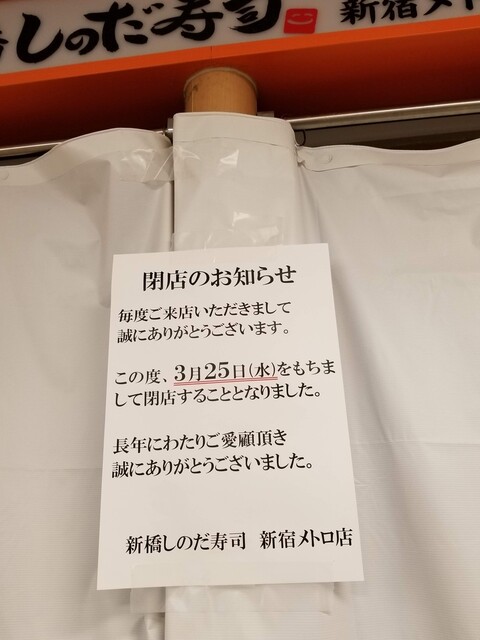 しのだ寿司 新宿メト
閉店のお知らせ
毎度ご来店いただきまして
誠にありがとうございます。
この度、3月25日(水)をもちま
して閉店することとなりました。
長年にわたりご愛顧頂き
誠にありがとうございました。
新橋しのだ寿司 新宿メトロ店